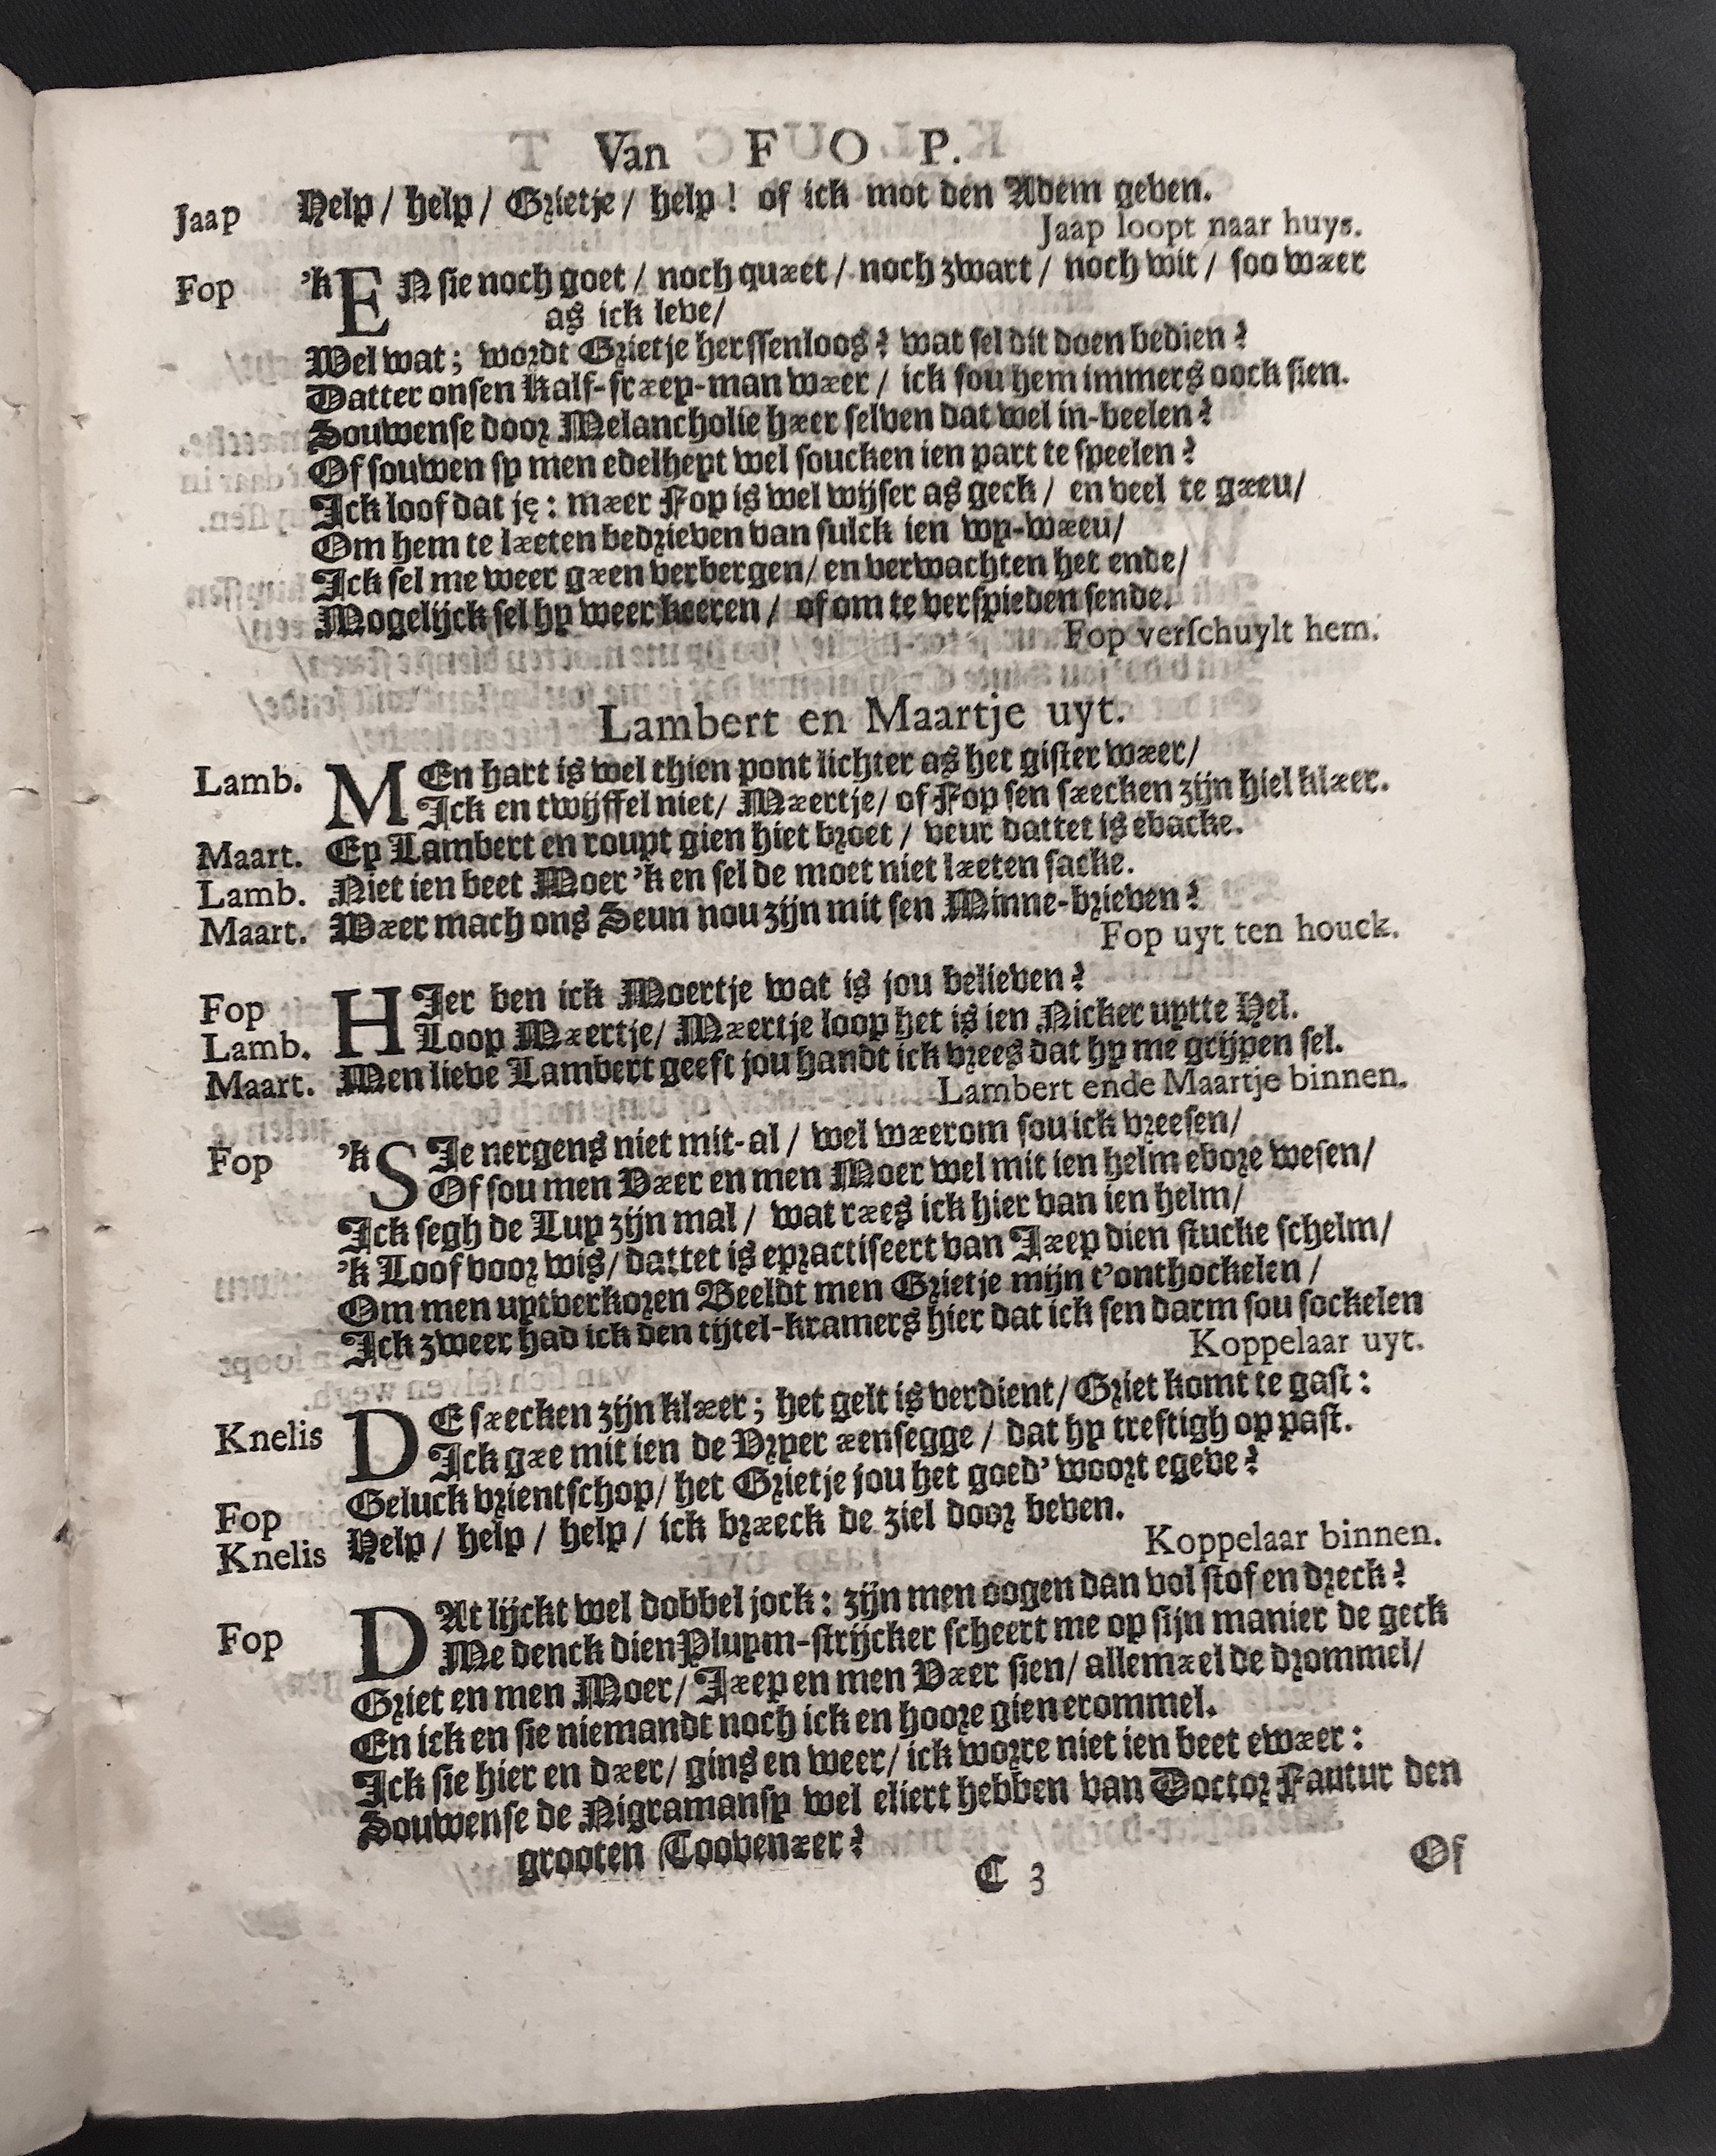 Van F O P.
Jaap Help / help / Grietje / help ! of ick mot den Adem geven.
Jaap loopt naar huys.
Fop 'k EN sie noch goet / noch quæt / noch zwart / noch wit / soo wæer
as ick leve /
Wel wat ; wordt Grietje herssenloos ? wat sel dit doen bedien ?
Datter onsen Kalf-stæep-man wæer / ick sou hem immers oock sien.
Souwense door Melancholie hæer selven dat wel in-beelen ?
Of souwen sy men edelheyt wel soucken ien part te speelen ?
Ick loof dat ję : mæer Fop is wel wijser as geck / en veel te gæeu /
Om hem te læeten bedrieven van sulck ien wy-wæeu /
Ick sel me weer gæen verbergen / en verwachten het ende /
Mogelijck sel hy weer keeren / of om te verspieden sende.
Fop verschuylt hem.
Lambert en Maartje uyt.
Lamb. MEn hart is wel thien pont lichter as het gister wæer /
Ick en twijffel niet / Mæertje / of Fop sen sæecken zijn hiel klæer.
Maart. Ey Lambert en roupt gien hiet broet / veur dattet is ebacke.
Lamb. Niet ien beet Moer 'k en sel de moet niet læeten sacke.
Maart. Wæer mach ons Seun nou zijn mit sen Minne-brieven ?
Fop uyt ten houck.
Fop HIer ben ick Moertje wat is jou believen ?
Lamb. Loop Mæertje / Mæertje loop het is ien Nicker uytte Hel.
Maart. Men lieve Lambert geeft jou handt ick vrees dat hy me grijpen sel.
Lambert ende Maartje binnen.
Fop 'k SIe nergens niet mit-al / wel wæerom sou ick vreesen /
Of sou men Væer en men Moer wel mit ien helm ebore wesen /
Ick segh de Luy zijn mal / wat ræes ick hier van ien helm /
'k Loof voor wis / dattet is epractiseert van Jæep dien stucke schelm /
Om men uytverkoren Beeldt men Grietje mijn t'onthockelen /
Ick zweer had ick den tijtel-kramers hier dat ick sen darm sou sockelen
Koppelaar uyt.
Knelis DE sæecken zijn klæer ; het gelt is verdient / Griet komt te gast :
Ick gæe mit ien de Vryer æensegge / dat hy treftigh op past.
Fop Geluck vrientschop / het Grietje jou het goed' woort egeve ?
Knelis Help / help / help / ick bræeck de ziel door beven.
Koppelaar binnen.
Fop DAt lijckt wel dobbel jock : zijn men oogen dan vol stof en dreck ?
Me denck dien Pluym-strijcker scheert me op sijn manier de geck
Griet en men Moer / Jæep en men Væer sien / allemæel de drommel /
En ick en sie niemandt noch ick en hoore gien erommel.
Ick sie hier en dæer / gins en weer / ick worre niet ien beet ewæer :
Souwense de Nigramansy wel eliert hebben van Doctor Fautur den
grooten Toovenæer ?
C 3 Of